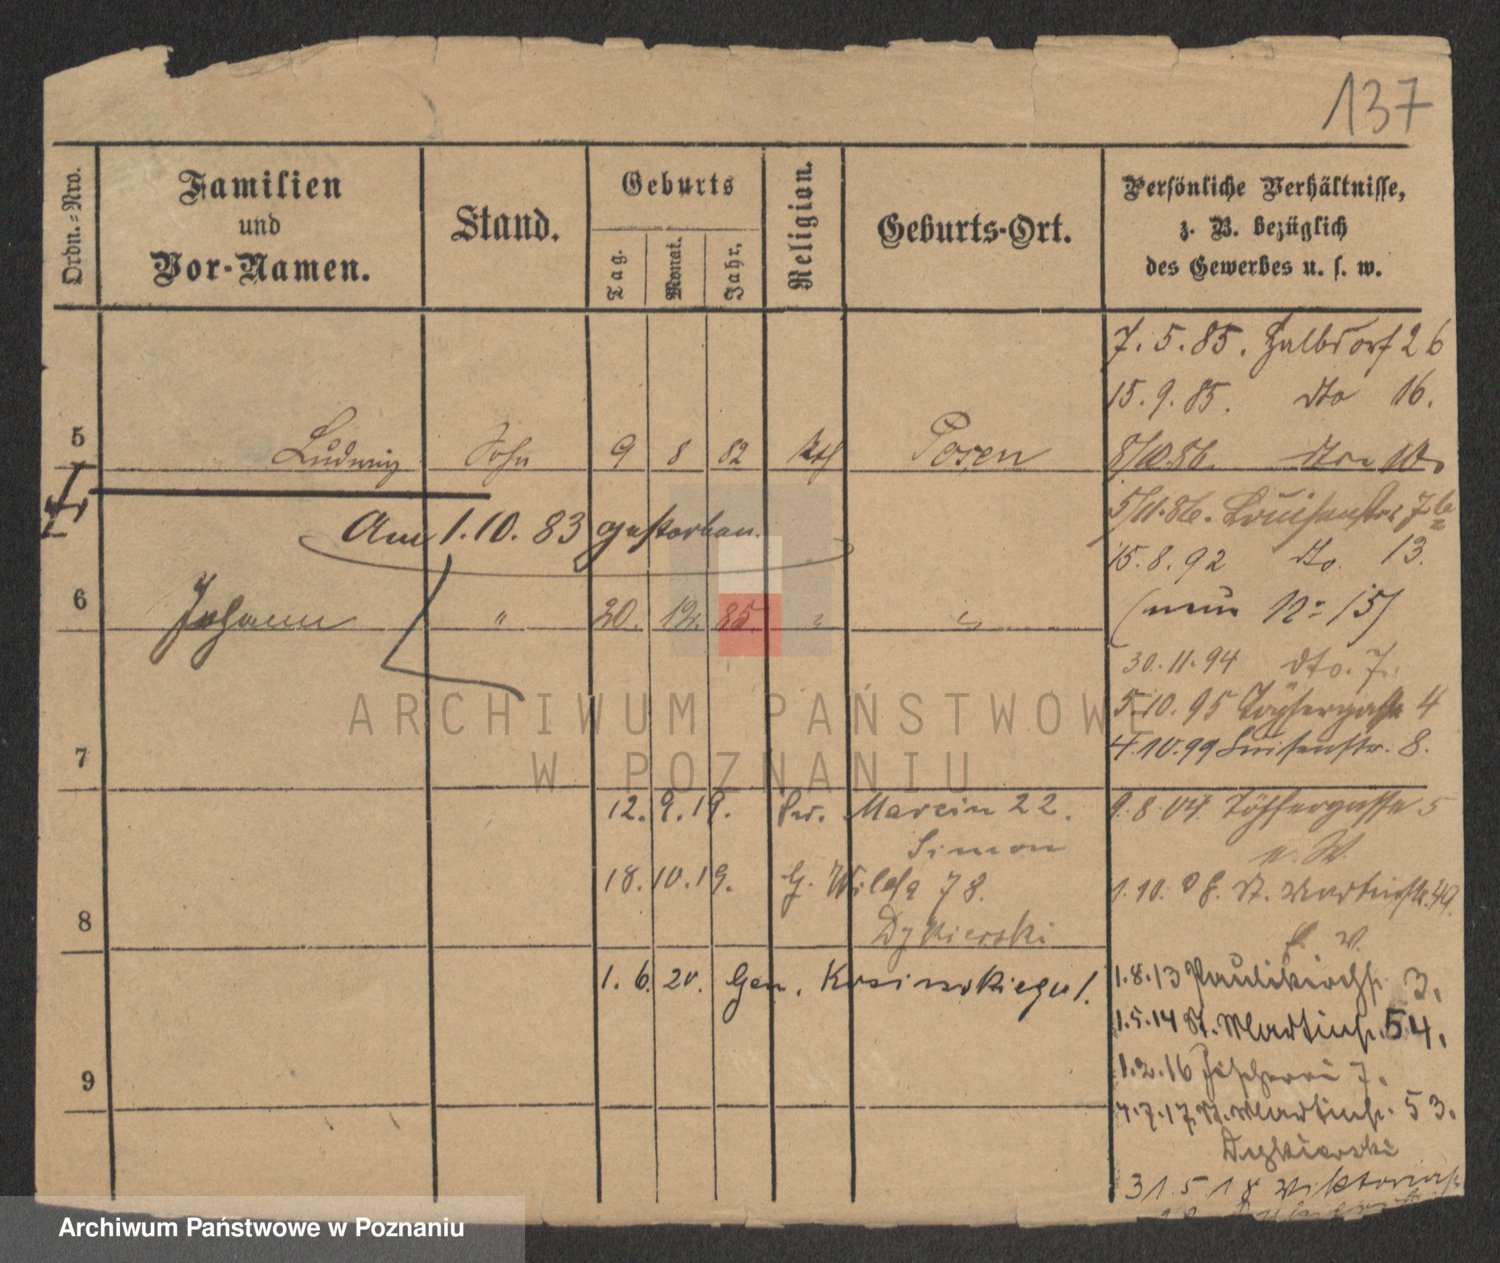 137
Ordn.=Nro.
Familien
und
Vor-Namen.
Stand.
Geburts
Tag.
Monat.
Jahr.
Religion.
Geburts-Ort.
Persönliche Verhältnisse,
z. B. bezüglich
des Gewerbes u. s. w.
7. 5. 85. Halbdorf 26
15. 9. 85. dto 16.
5 Ludwig Sohn 9 8 82 kth Posen
8/10.86. dto 10.
Am 1.10.83 gestorben.
5/11.86. Louisenstr. 7b
15.8.92 dto. 13.
6 Johann " 20. 12. 85. " "
(neue No 15)
30.11.94 dto. 7.
5.10.95 Töpfergasse 4
7
4.10.99 Luisenstr. 8.
12.9.19. Św. Marcin 22.
Simon
9.8.04. Töpfergasse 5
18.10.19. G. Wilda 78.
1.10.08. St. Martinstr. 49.
8 Dykierski
1.6.20. Gen. Kosinskiego 1.
1.8.13 Paulikirchstr. 3.
1.5.14 St. Martinstr. 54.
1.2.16 Fischerei 7.
9
4.7.17. St. Martinstr. 53.
Dykierski
31.5.18 Wiktoriastr.
ARCHIWUM PAŃSTWOW
W POZNANIU
Archiwum Państwowe w Poznaniu